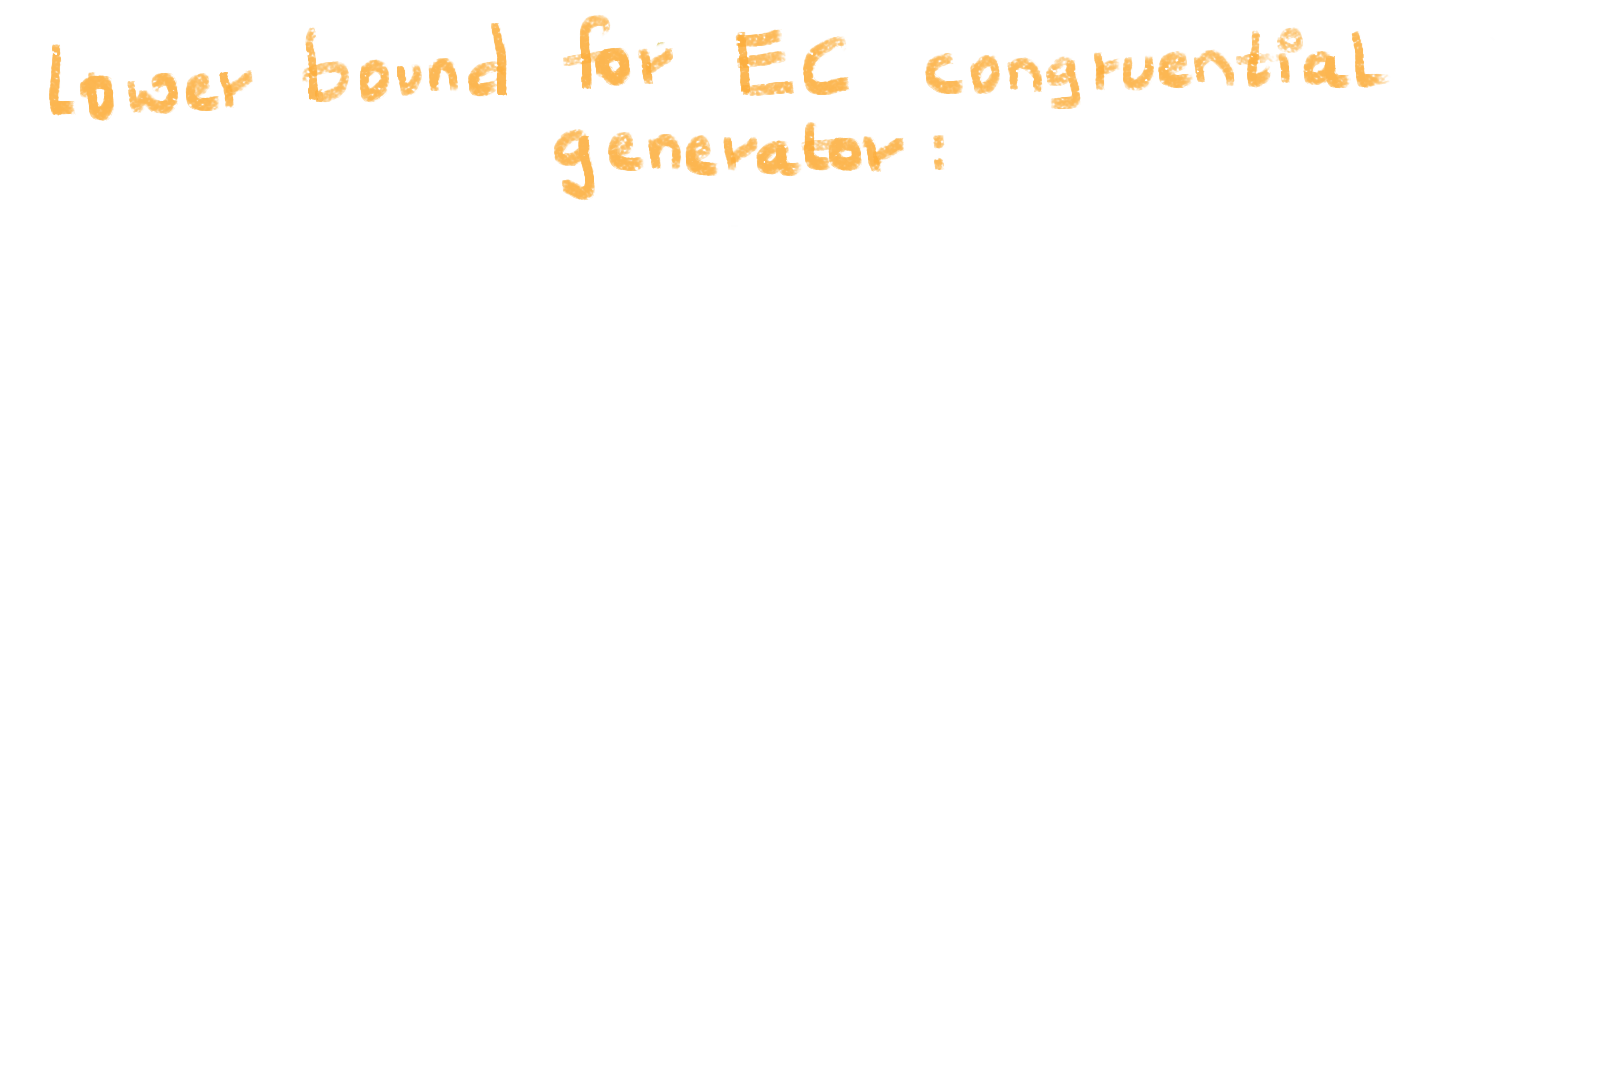 Lower bound for EC congruential
generator: